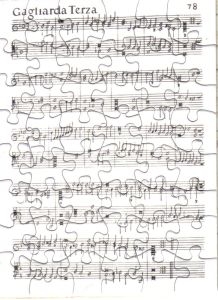 Gagliarda Terza
78